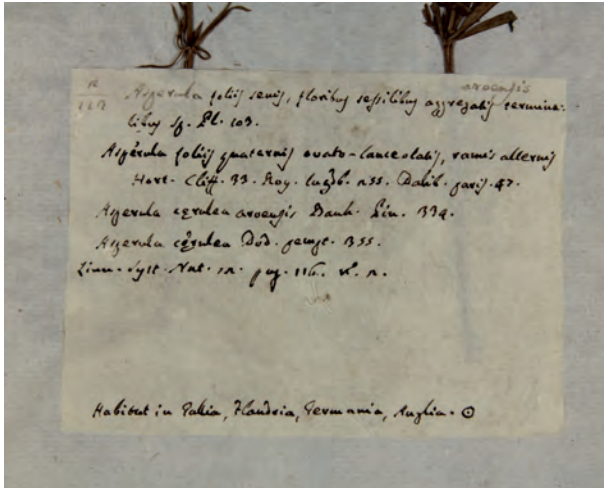 arvensis
Asperula foliis senis, floribus sessilibus aggregatis termina:
libus sp. Pl. 103.
Asperula foliis quaternis ovato-lanceolatis, ramis alternis
Hort. Cliff. 33. Roy. lugdb. 255. Dalib. paris. 47.
Asperula cęrulea arvensis Bauh. Pin. 334.
Asperula cęrulea Dod. pempt. 355.
Linn. Syst. Nat. 12. pag. 116. N. 2.
Habitat in Gallia, Flandria, Germania, Anglia. ☉